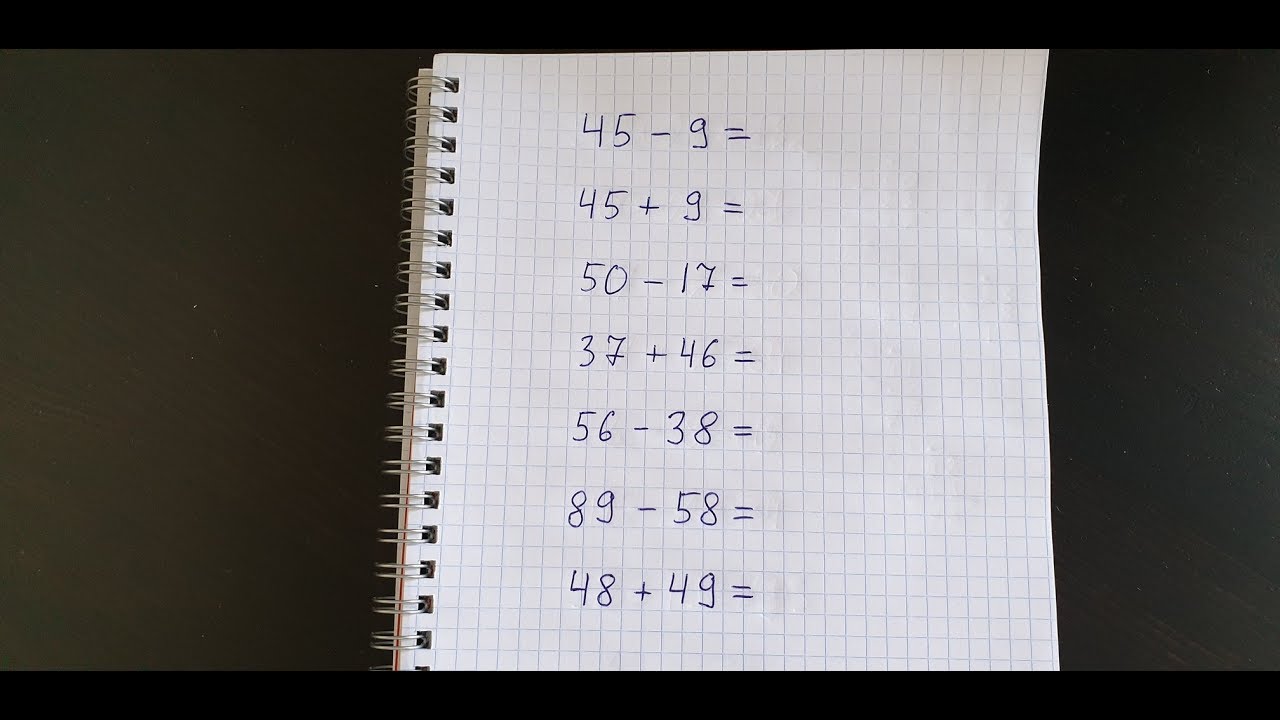 45 - 9 =
45 + 9 =
50 - 17 =
37 + 46 =
56 - 38 =
89 - 58 =
48 + 49 =